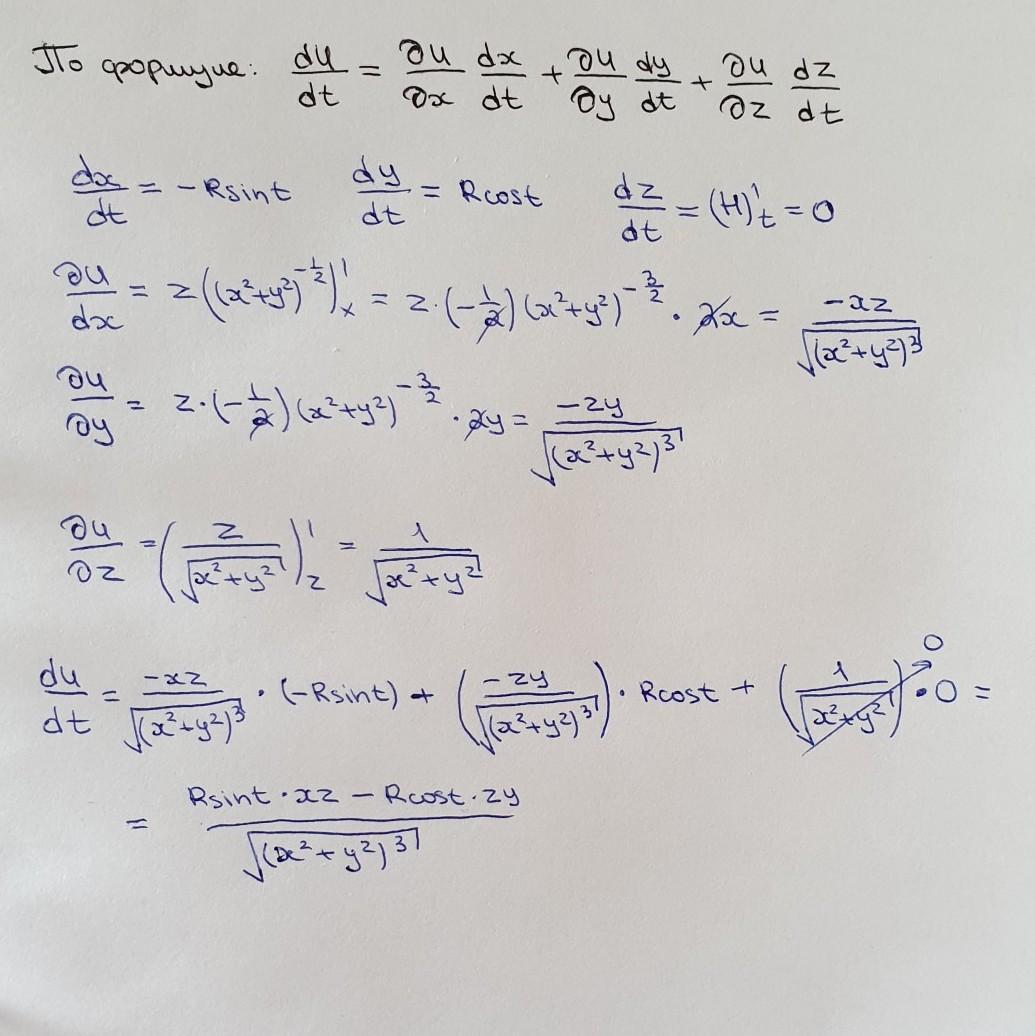 По формуле: du/dt = ∂u/∂x dx/dt + ∂u/∂y dy/dt + ∂u/∂z dz/dt
dx/dt = -Rsint dy/dt = Rcost dz/dt = (H)'ₜ = 0
∂u/dx = z((x²+y²)^(-1/2))'ₓ = z·(-1/2)(x²+y²)^(-3/2) · 2x = -xz/√((x²+y²)³)
∂u/∂y = z·(-1/2)(x²+y²)^(-3/2) · 2y = -zy/√((x²+y²)³)
∂u/∂z = (z/√(x²+y²))'_z = 1/√(x²+y²)
du/dt = -xz/√((x²+y²)³) · (-Rsint) + (-zy/√((x²+y²)³)) · Rcost + (1/√(x²+y²)) · 0 → 0 =
= (Rsint·xz - Rcost·zy)/√((x²+y²)³)